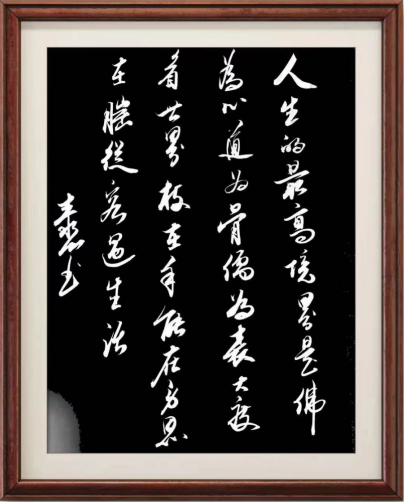 人生的最高境界是佛
為心道为骨儒為表大度
看世界技在手能在身思
在腦從容過生活
书